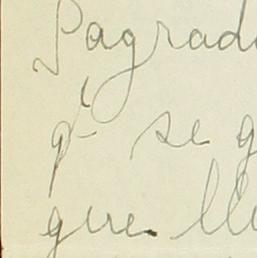 Pagrad
q- se g
que. lle